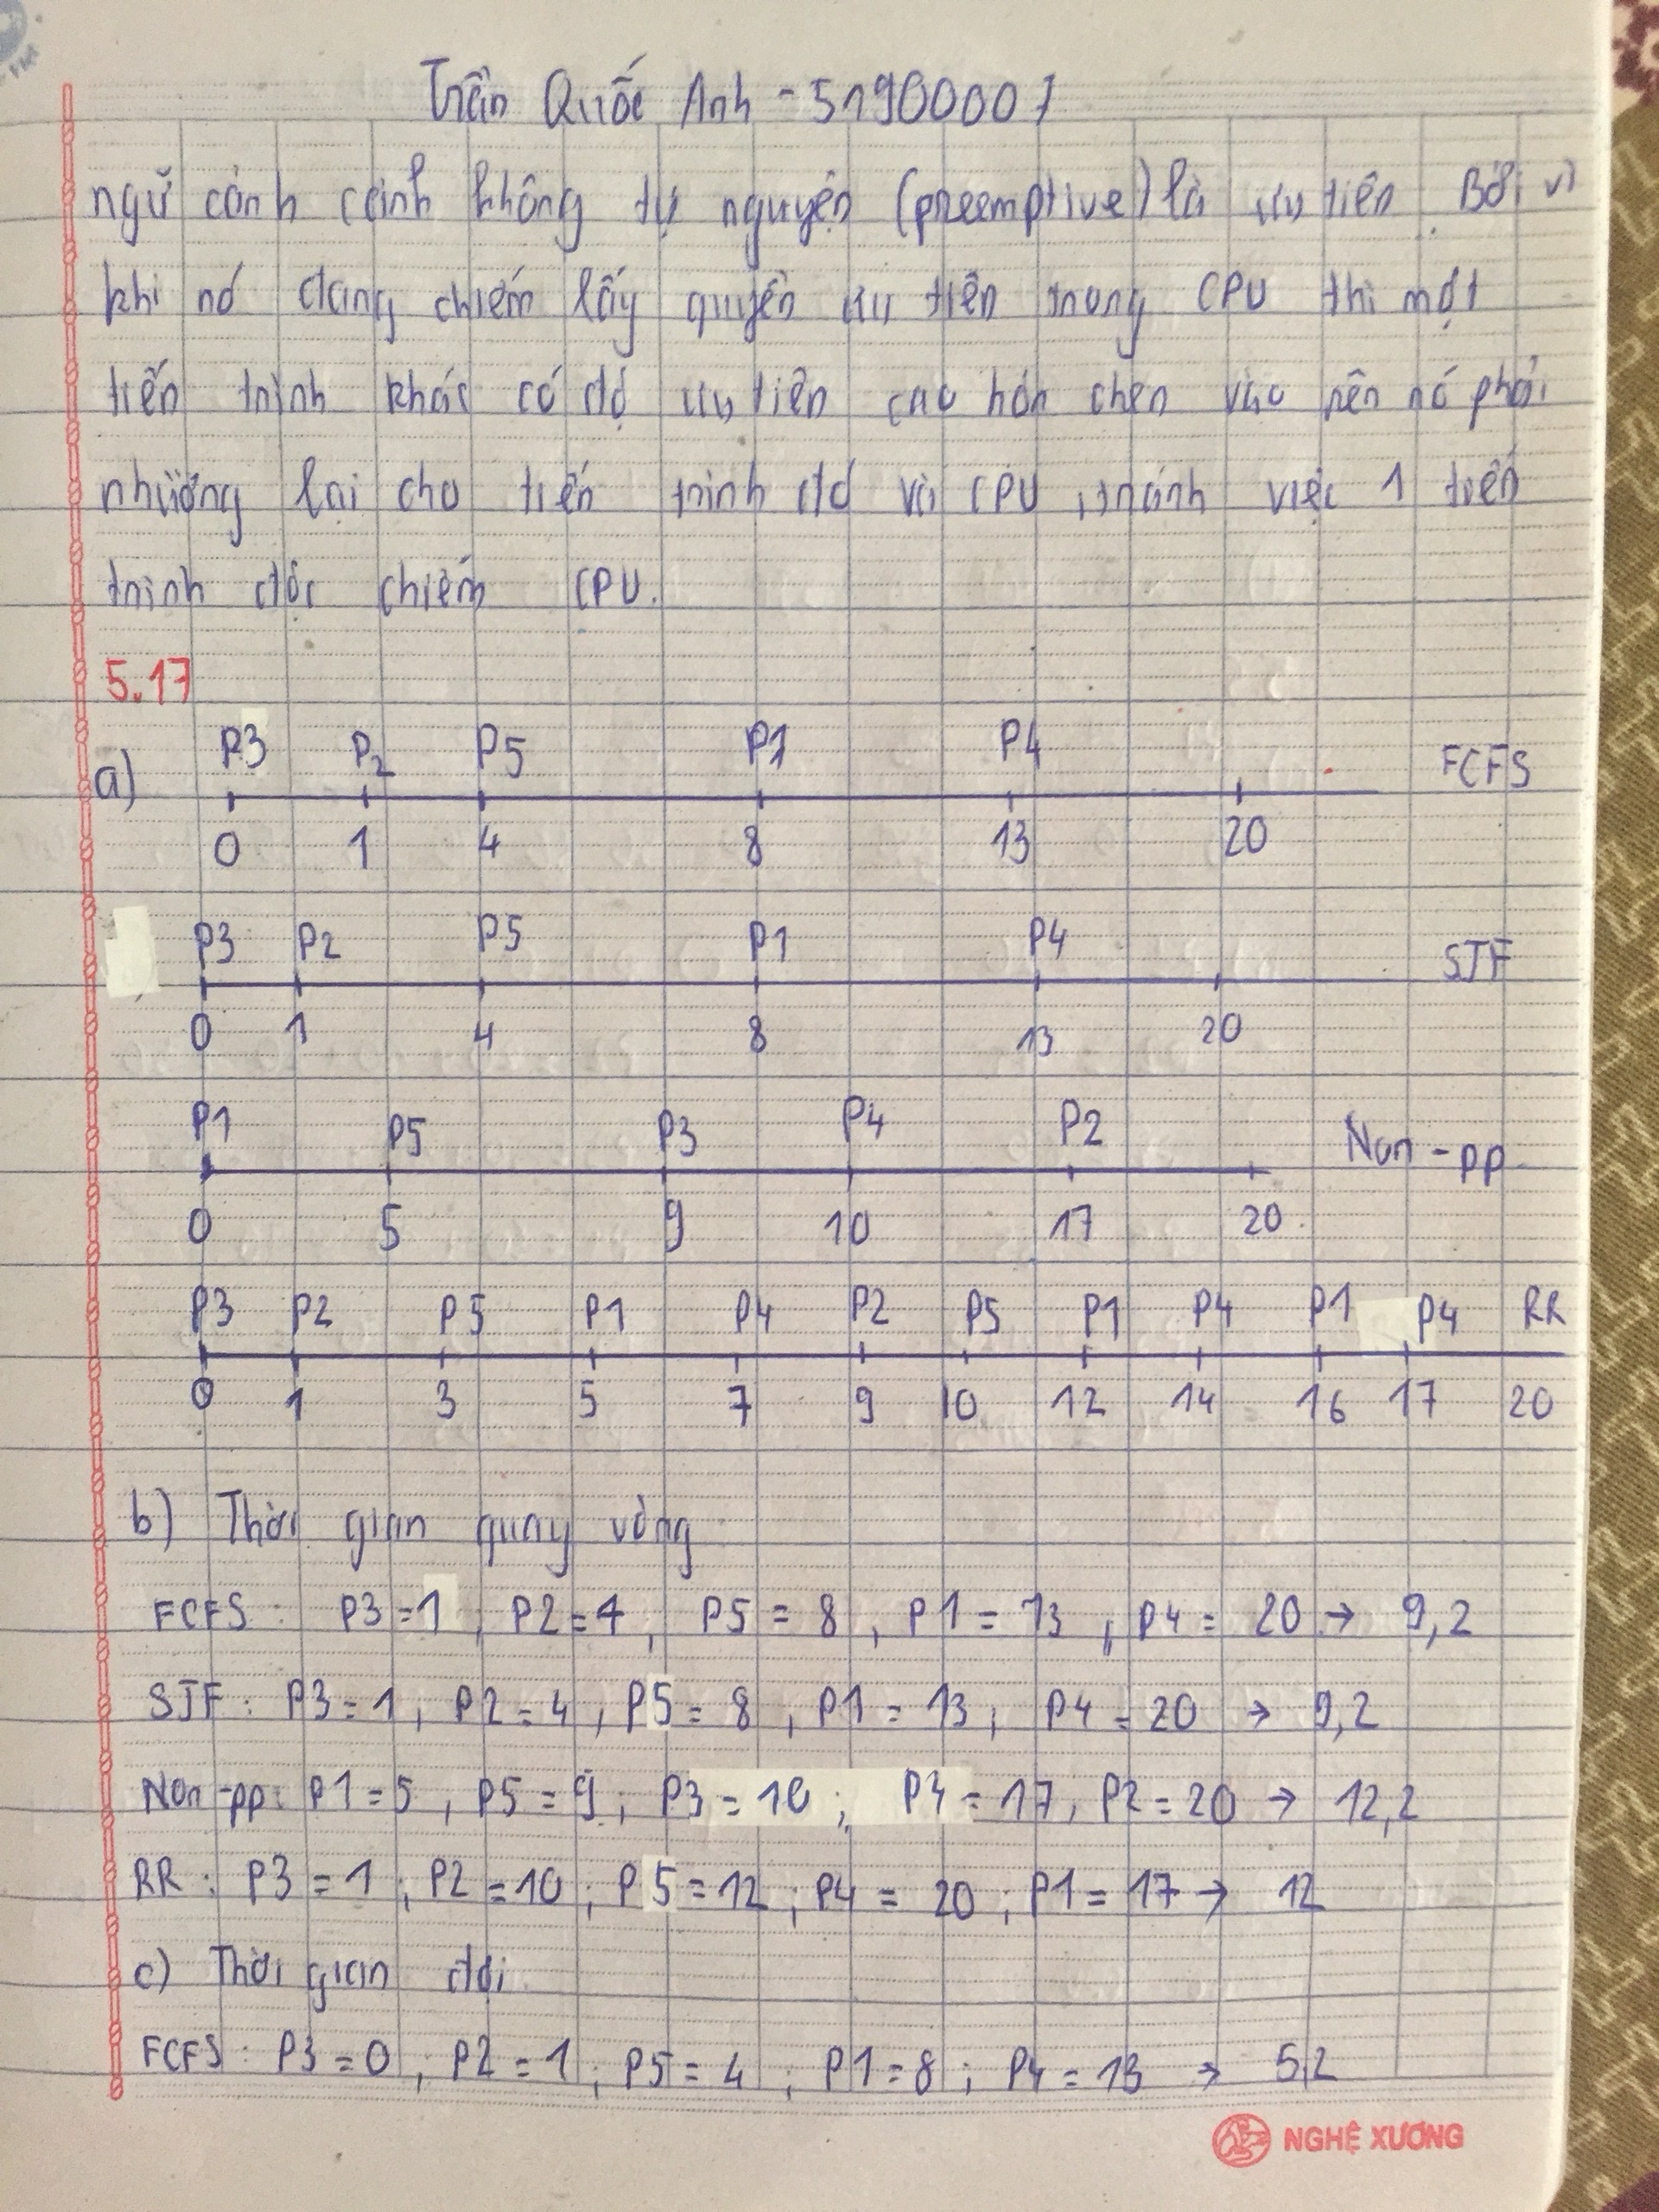 Trần Quốc Anh - 51900007
ngữ cảnh cảnh không tự nguyện (preemptive) là ưu tiên. Bởi vì
khi nó đang chiếm lấy quyền ưu tiên trong CPU thì một
tiến trình khác có độ ưu tiên cao hơn chen vào nên nó phải
nhường lại cho tiến trình đó và CPU, tránh việc 1 tiến
trình độc chiếm CPU.
5.17
a) P3 P2 P5 P1 P4 FCFS
0 1 4 8 13 20
P3 P2 P5 P1 P4 SJF
0 1 4 8 13 20
P1 P5 P3 P4 P2 Non-pp
0 5 9 10 17 20
P3 P2 P5 P1 P4 P2 P5 P1 P4 P1 P4 RR
0 1 3 5 7 9 10 12 14 16 17 20
b) Thời gian quay vòng
FCFS: P3=1, P2=4, P5=8, P1=13, P4=20 → 9,2
SJF: P3=1, P2=4, P5=8, P1=13, P4=20 → 9,2
Non-pp: P1=5, P5=9; P3=10; P4=17, P2=20 → 12,2
RR: P3=1; P2=10; P5=12; P4=20; P1=17 → 12
c) Thời gian đợi
FCFS: P3=0; P2=1; P5=4; P1=8; P4=13 → 5,2
NGHỆ XƯƠNG